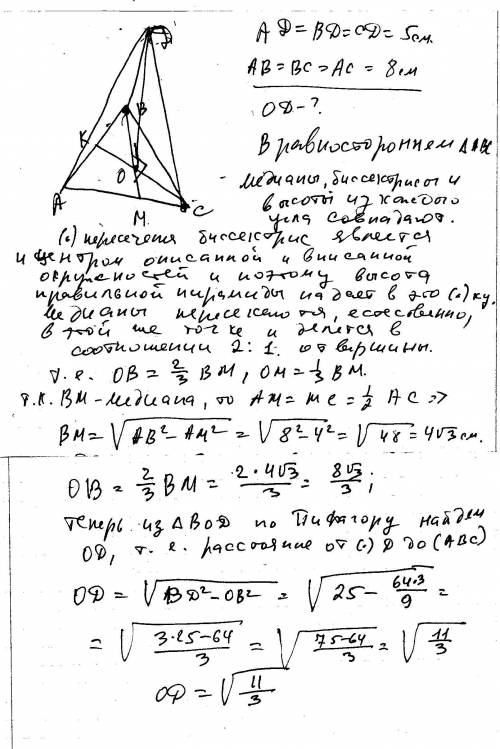 D
B
K
O
A
M
C
AD=BD=CD=5см.
AB=BC=AC=8см
OD-?
В равностороннем ΔABC
медианы, биссектрисы и
высоты из каждого
угла совпадают.
(·) пересечения биссектрис является
и центром описанной и вписанной
окружностей и поэтому высота
правильной пирамиды падает в это (·)ку.
Медианы пересекаются, естественно,
в этой же точке и делятся в
соотношении 2:1 от вершины.
т.е. OB = 2/3 BM, OM = 1/3 BM.
т.к. BM-медиана, то AM=MC=1/2 AC ⇒
BM = √(AB²-AM²) = √(8²-4²) = √48 = 4√3 см.
OB = 2/3 BM = 2·4√3/3 = 8√3/3;
Теперь из ΔBOD по Пифагору найдем
OD, т.е. расстояние от (·) D до (ABC)
OD = √(BD²-OB²) = √(25 - 64·3/9) =
= √((3·25-64)/3) = √((75-64)/3) = √(11/3)
OD = √(11/3)